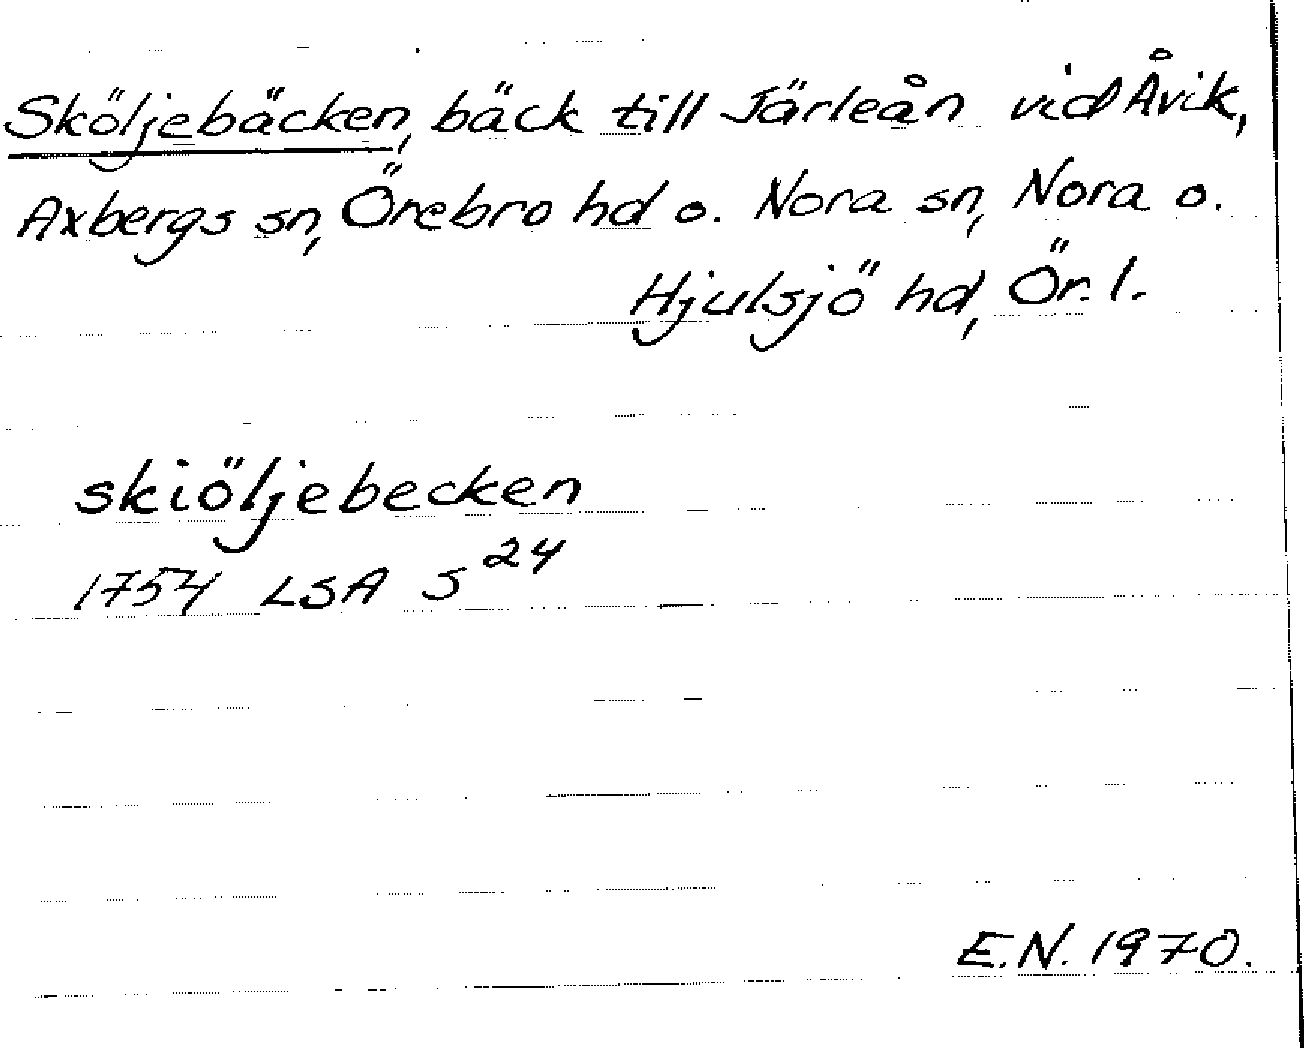 Sköljebäcken, bäck till Järleån vid Åvik,
Axbergs sn, Örebro hd o. Nora sn, Nora o.
Hjulsjö hd, Ör. l.
skiöljebecken
1754 LSA S 24
E.N. 1970.